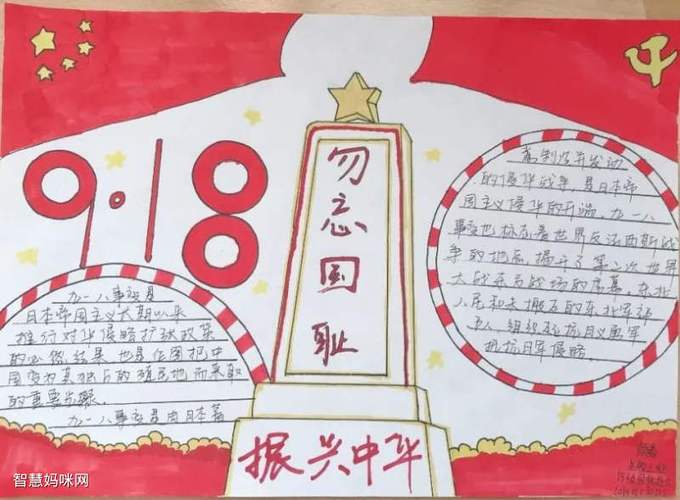 9·18
勿忘国耻
振兴中华
九一八事变是
日本帝国主义长期以来
推行对华侵略扩张政策
的必然结果 也是企图把中
国变为其独占的殖民地而采取
的重要步骤。
九一八事变是由日本蓄
意制造并发动
的侵华战争 是日本帝
国主义侵华的开端 九一八
事变也标志着世界反法西斯战
争的 揭开了第二次世界
大战东方战场的序幕。东北
人民和未撤走的东北军部
组织 抗日义勇军
抵抗日军侵略。
智慧妈咪网